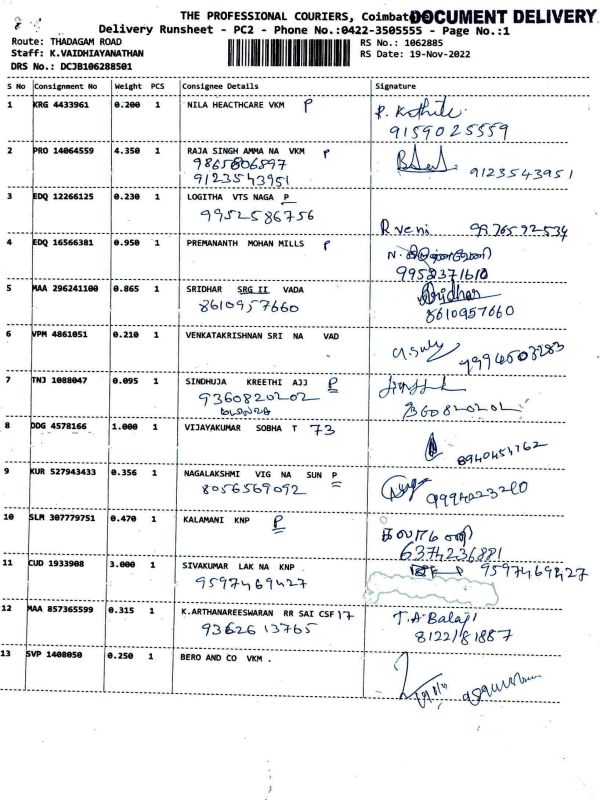 THE PROFESSIONAL COURIERS, Coimbatore
DOCUMENT DELIVERY
Delivery Runsheet - PC2 - Phone No.:0422-3505555 - Page No.:1
Route: THADAGAM ROAD RS No.: 1062885
Staff: K.VAIDHIAYANATHAN RS Date: 19-Nov-2022
DRS No.: DCJB106288501
S No Consignment No Weight PCS Consignee Details Signature
1 KRG 4433961 0.200 1 NILA HEACTHCARE VKM P
9159025559
2 PRO 14064559 4.350 1 RAJA SINGH AMMA NA VKM P
9865806597
9123543951 9123543951
3 EDQ 12266125 0.230 1 LOGITHA VTS NAGA P
9952586756
R veni
4 EDQ 16566381 0.950 1 PREMANANTH MOHAN MILLS P
5 MAA 296241100 0.865 1 SRIDHAR SRG II VADA Sridhar
8610957660 8610957660
6 VPM 4861051 0.210 1 VENKATAKRISHNAN SRI NA VAD
7 TNJ 1088047 0.095 1 SINDHUJA KREETHI AJJ P
9360820202
8 DDG 4578166 1.000 1 VIJAYAKUMAR SOBHA T 73
9 KUR 527943433 0.356 1 NAGALAKSHMI VIG NA SUN P
8056569092
10 SLM 307779751 0.470 1 KALAMANI KNP P
கலாமணி
6374236881
11 CUD 1933908 3.000 1 SIVAKUMAR LAK NA KNP
9597469427 9597469427
12 MAA 857365599 0.315 1 K.ARTHANAREESWARAN RR SAI CSF 17 T.A Balaji
9362613765 8122181887
13 SVP 1408050 0.250 1 BERO AND CO VKM .